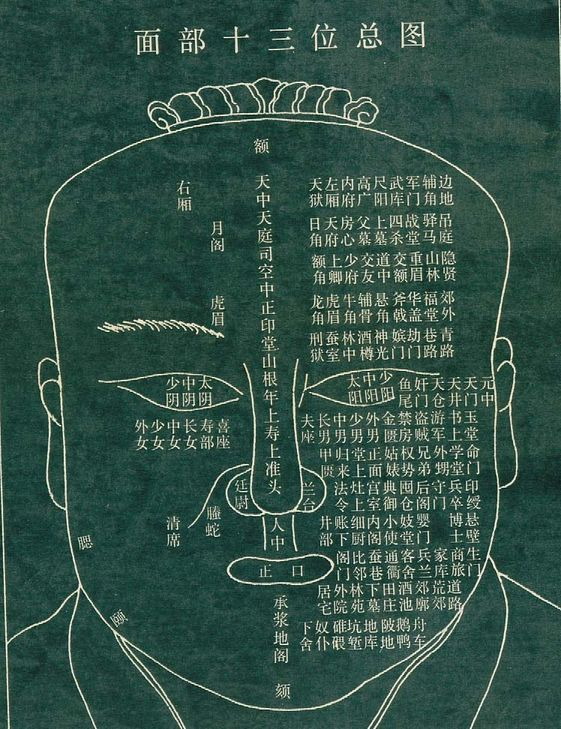 面部十三位总图
额
天中天庭司空中正印堂山根年上寿上准头
人中
正口
承浆地阁
颏
右厢
月阁
虎眉
天左内高尺武军辅边
狱厢府广阳库门角地
日天房父上四战驿吊
角府心墓墓杀堂马庭
额上少交道交重山隐
角卿府友中额眉林贤
龙虎牛辅悬斧华福郊
角眉角骨角戟盖堂外
刑蚕林酒神嫔劫巷青
狱室中樽光门门路路
少中太
阴阴阴
太中少
阳阳阳
鱼奸天天天元
尾门仓井门中
外少中长寿喜
女女女女部座
夫长中少外金禁盗游书玉
座男男男男匮房贼军上堂
甲归堂正姑权兄外学命
匮来上面婊势弟甥堂门
廷尉
兰台
法灶宫典囤后守兵印
令上室御仓阁门卒绶
井账细内小妓婴博悬
部下厨阁使堂门士壁
阁比蚕通客兵家商生
门邻巷衢舍兰库旅门
居外林下田酒郊荒道
宅院苑墓庄池廓郊路
下奴碓坑地陂鹅舟
舍仆碨堑库地鸭车
螣蛇
清席
腮
颐